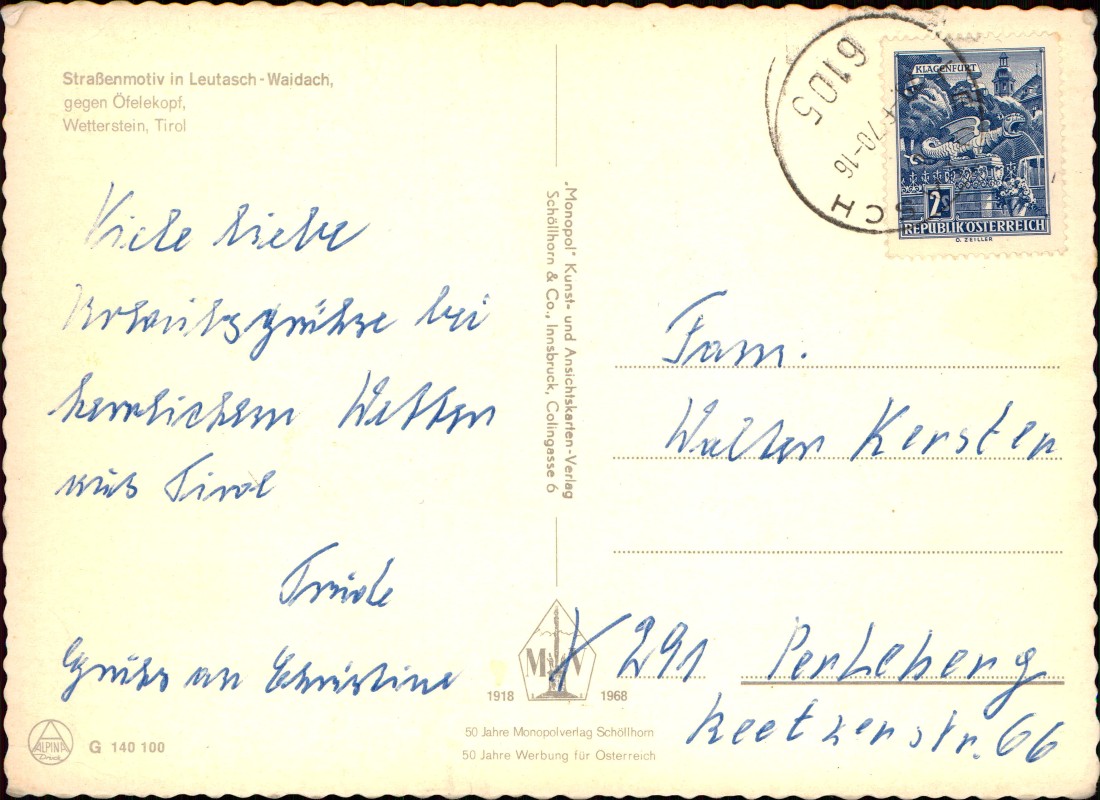 Straßenmotiv in Leutasch - Waidach,
gegen Öfelekopf,
Wetterstein, Tirol
Viele liebe
Urlaubsgrüße bei
herrlichem Wetter
aus Tirol
Trude
Gruß an Christine
ALPINA
Druck
G 140 100
„Monopol" Kunst- und Ansichtskarten-Verlag
Schöllhorn & Co., Innsbruck, Colingasse 6
M V
1918 1968
50 Jahre Monopolverlag Schöllhorn
50 Jahre Werbung für Österreich
6105
70-16
SCH
KLAGENFURT
2s
REPUBLIK ÖSTERREICH
O. ZEILLER
Fam.
Walter Kersten
X 291 Perleberg
Reetzerstr. 66